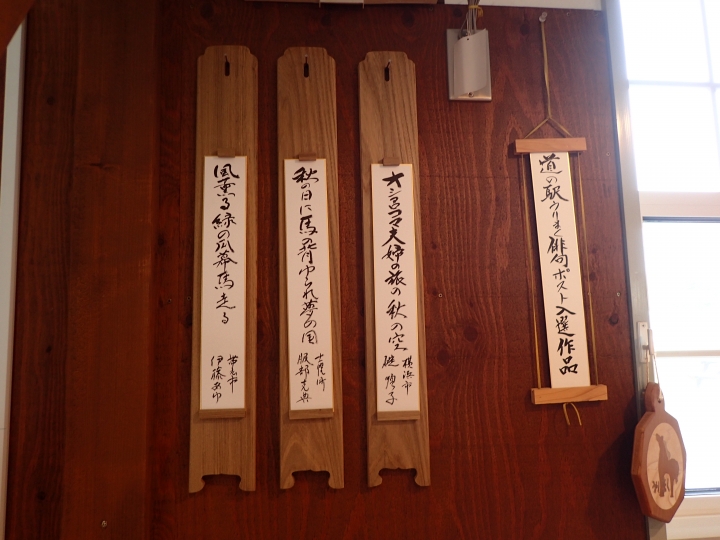 道の駅うりまく俳句ポスト入選作品
オショロコマ夫婦の旅の秋の空
横浜市
秋の日に馬の背ゆられ夢の国
士幌町
服部克典
風薫る緑の瓜幕馬走る
帯広市
伊藤あゆ